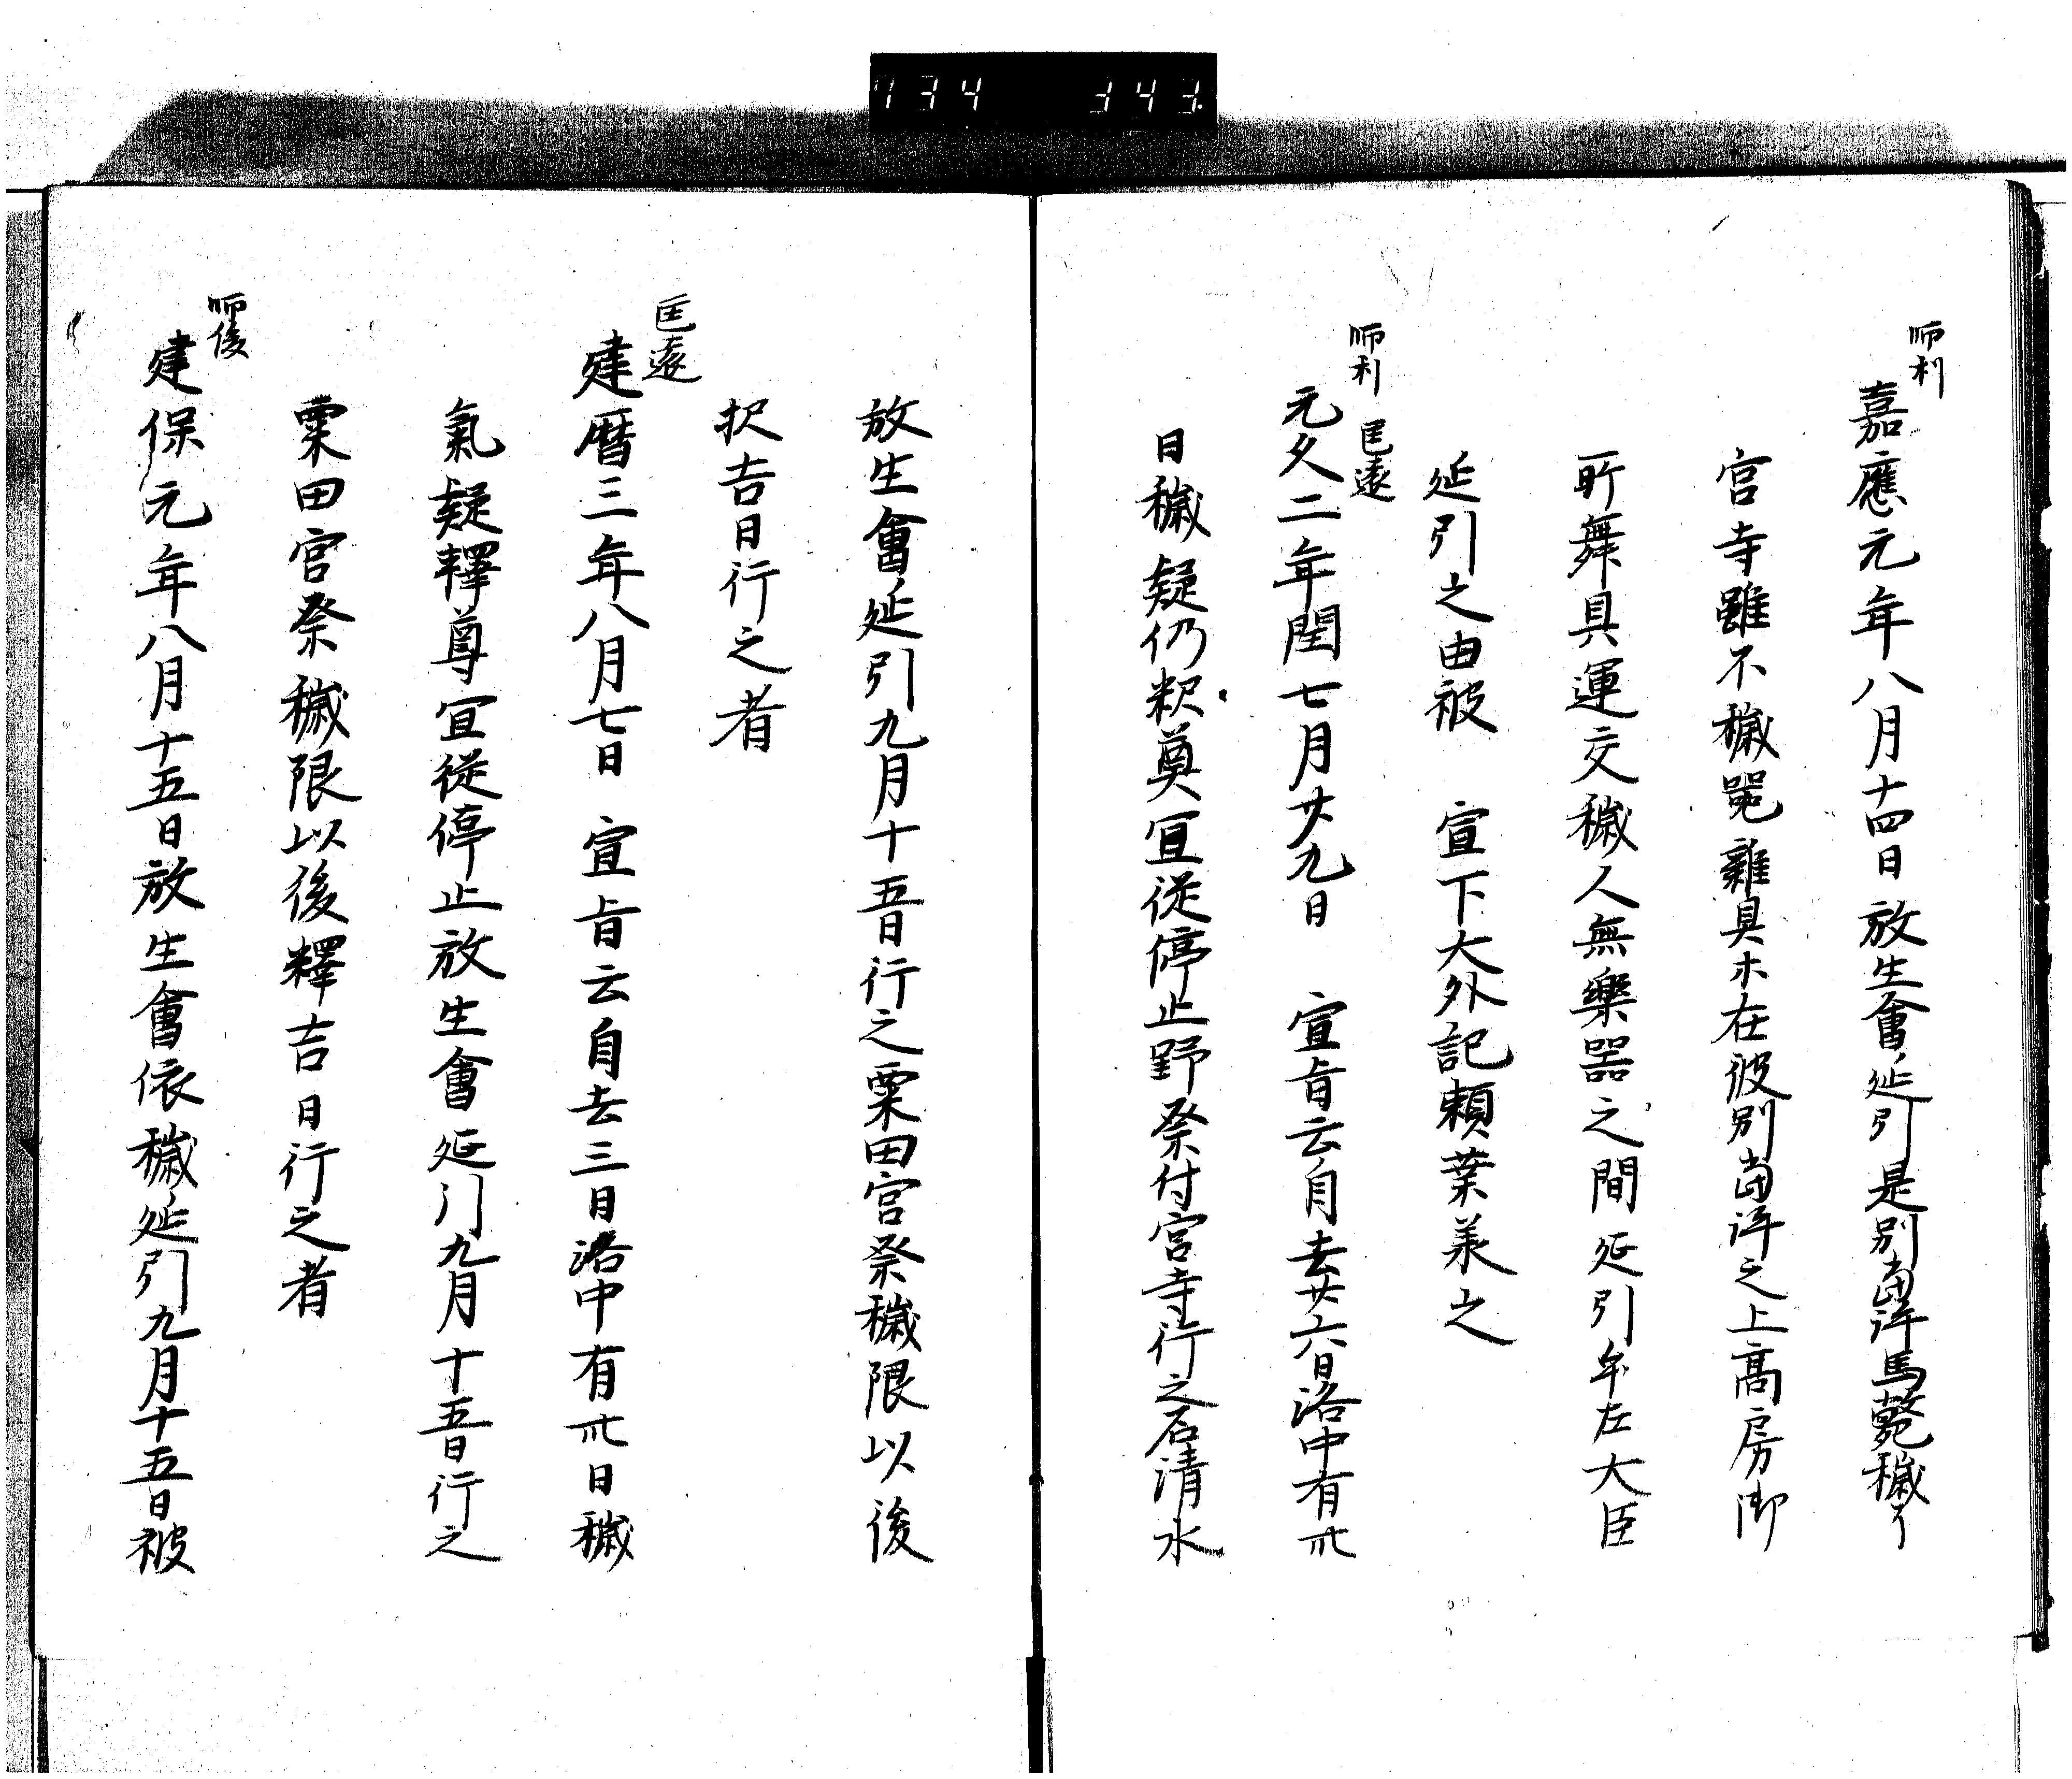 134 343
師利
嘉應元年八月十四日放生會延引是別當淨馬斃穢了
宮寺雖不穢罷雜具木在彼別當淨之上高房御
所舞具運交穢人無樂器之間延引年左大臣
延引之由被 宣下大外記頼業奉之
師利 匡遠
元久二年閏七月廿九日 宣旨云自去廿六日洛中有卅
日穢疑仍釈奠宜從停止野祭付宮寺行之石清水
放生會延引九月十五日行之粟田宮祭穢限以後
択吉日行之者
匡遠
建暦三年八月七日 宣旨云自去三日洛中有卅日穢
氣疑釋尊宜從停止放生會延引九月十五日行之
粟田宮祭穢限以後釋吉日行之者
師俊
建保元年八月十五日放生會依穢延引九月十五日被